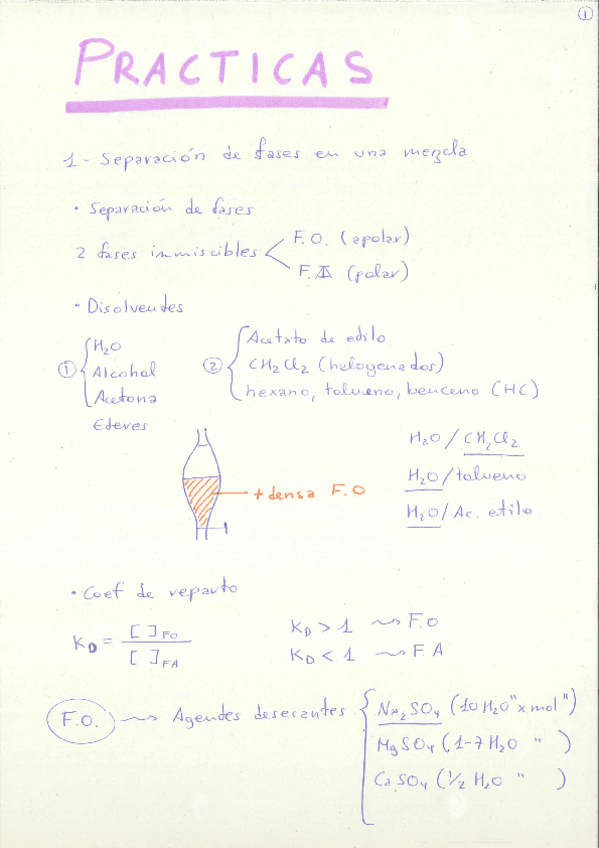 ①
PRACTICAS
1 - Separación de fases en una mezcla
• Separación de fases
2 fases inmiscibles
F.O. (apolar)
F.A (polar)
• Disolventes
①
H₂O
Alcohol
Acetona
Eteres
②
Acetato de etilo
CH₂Cl₂ (halogenados)
hexano, tolueno, benceno (HC)
H₂O / CH₂Cl₂
H₂O / tolueno
H₂O / Ac. etilo
+ densa F.O
• Coef de reparto
K_D = [ ]_FO / [ ]_FA
K_D > 1 ⟿ F.O
K_D < 1 ⟿ F A
F.O. ⟿ Agentes desecantes
Na₂SO₄ (10 H₂O "x mol")
MgSO₄ (1-7 H₂O " )
CaSO₄ (½ H₂O " )